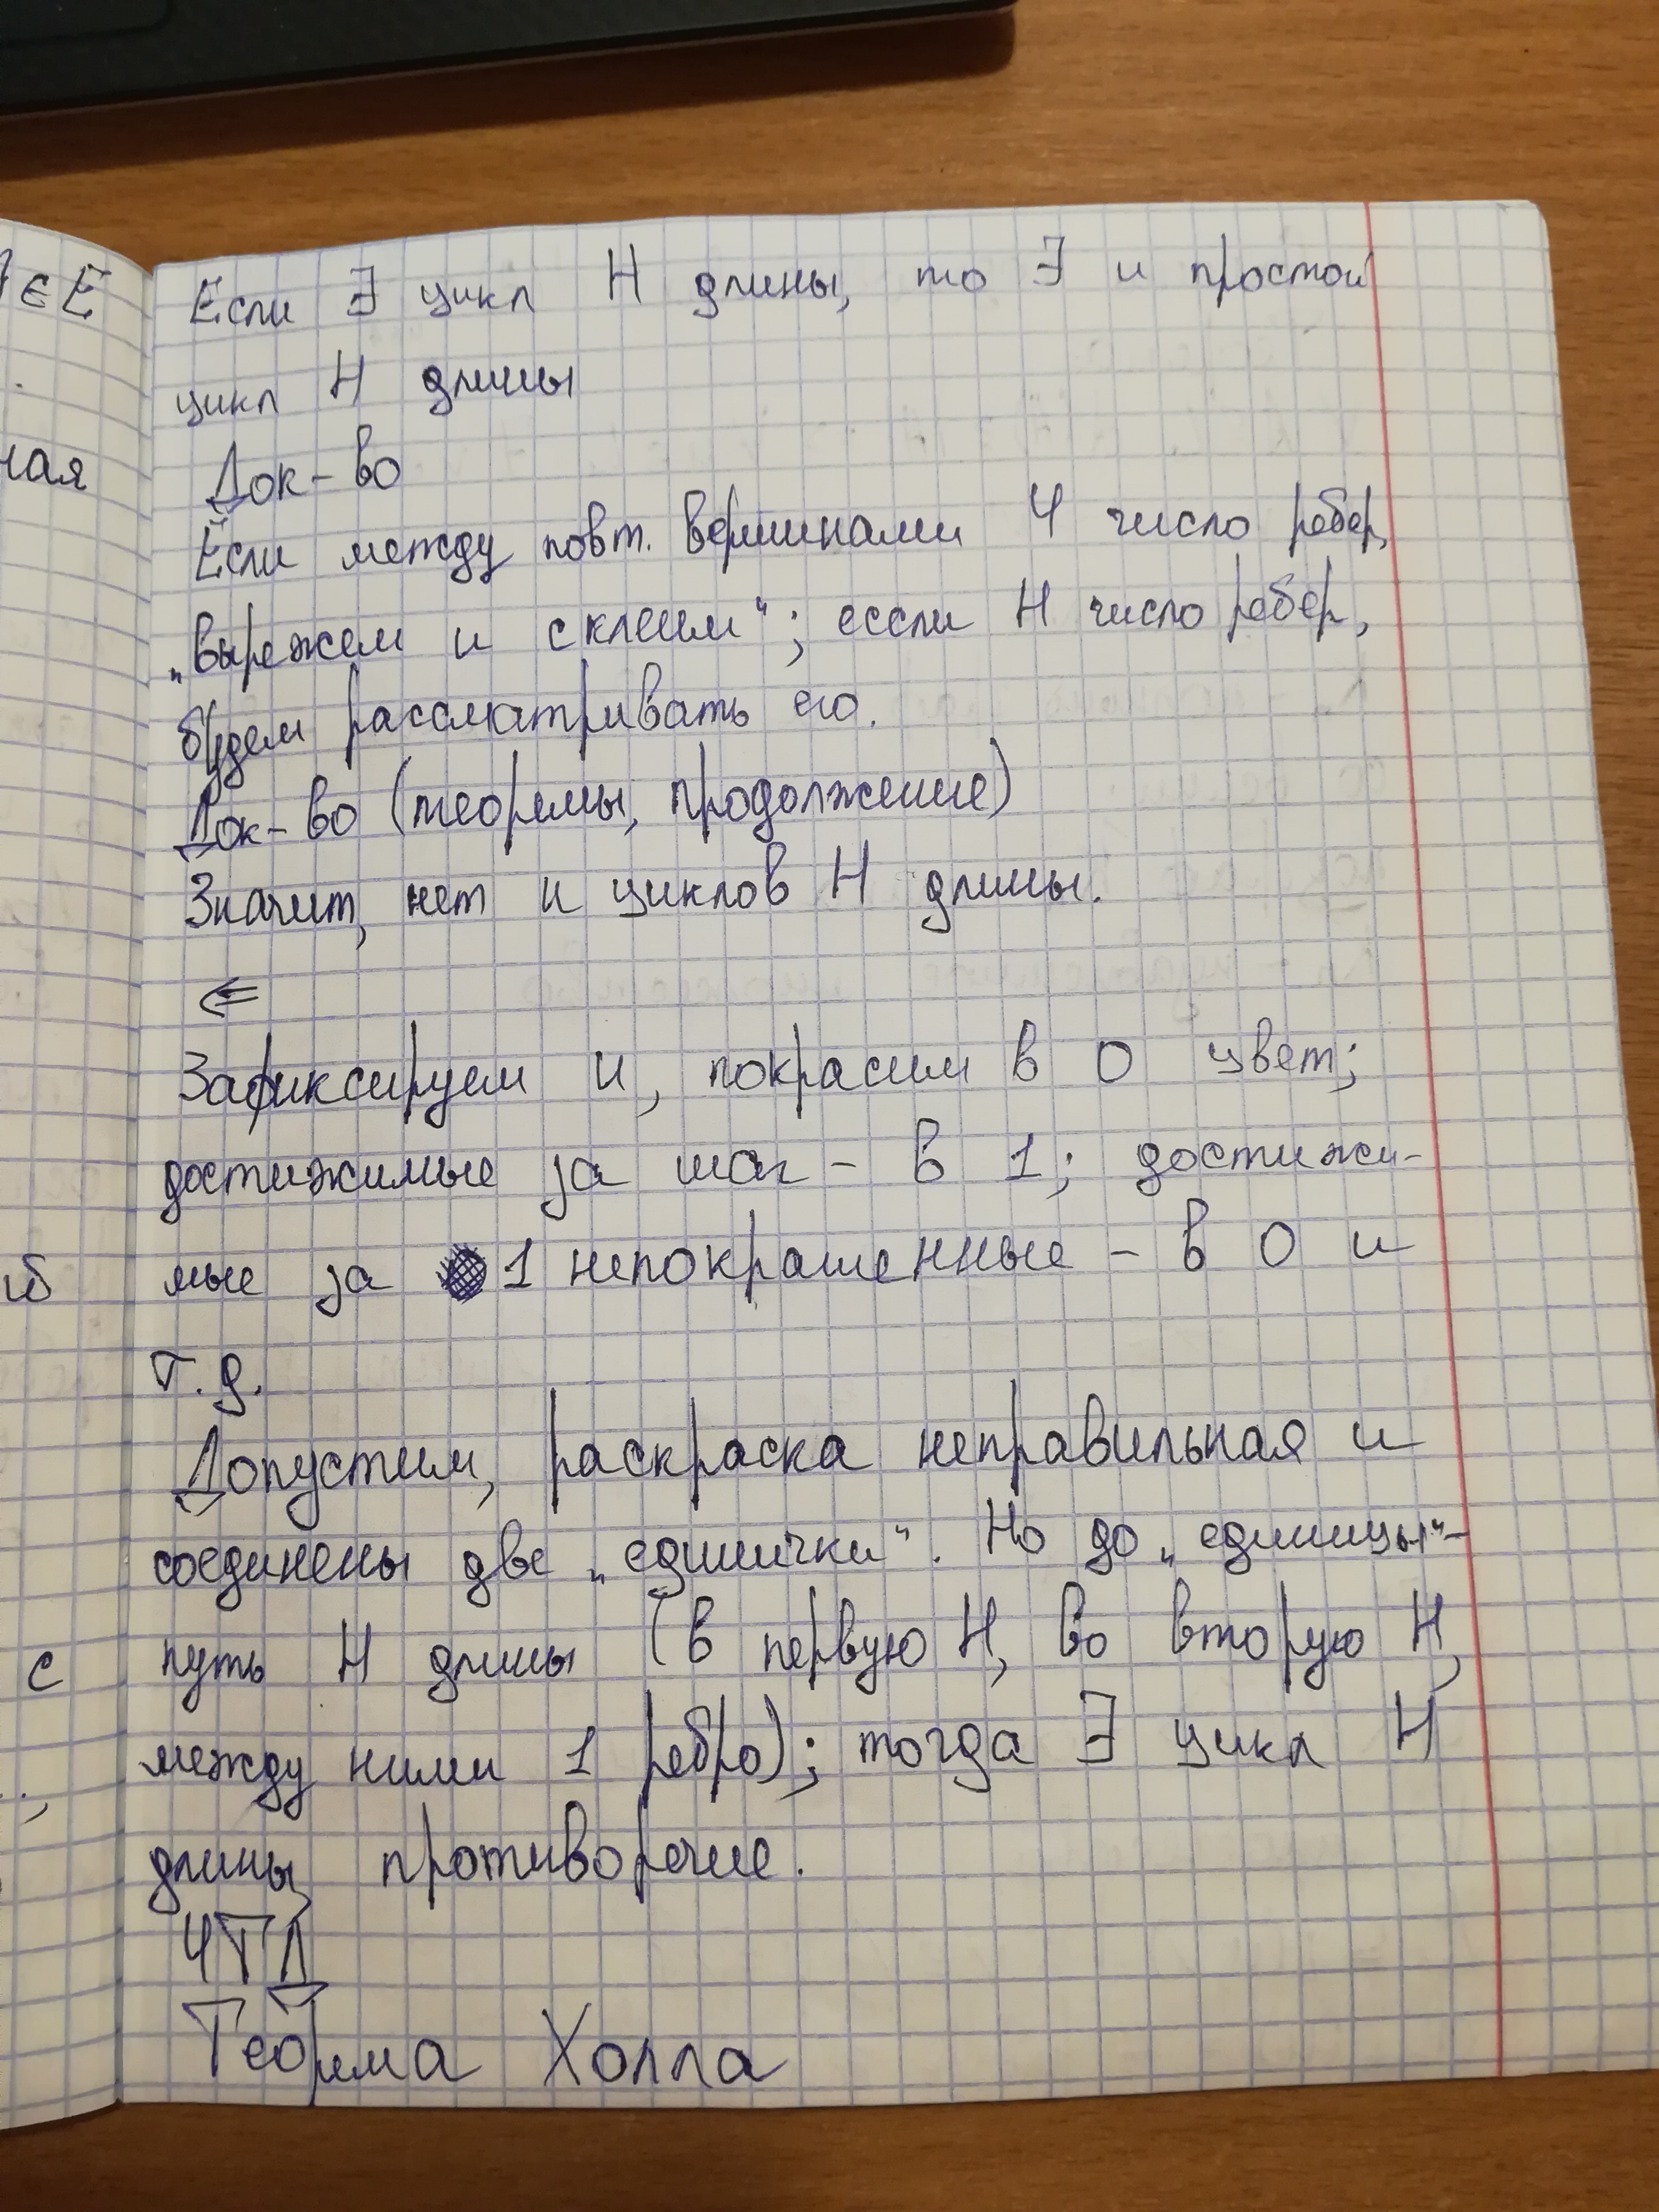 Если ∃ цикл Н длины, то ∃ и простой
цикл Н длины
Док-во
Если между повт. вершинами Ч число ребер,
„вырежем и склеим“; eсcли Н число ребер,
будем рассматривать его.
Док-во (теоремы, продолжение)
Значит, нет и циклов Н длины.
⇐
Зафиксируем и, покрасим в 0 цвет;
достижимые за шаг - в 1; достижи-
мые за 1 непокрашенные - в 0 и
т.д.
Допустим, раскраска неправильная и
соединены две „единички“. Но до „единицы“-
путь Н длины (в первую Н, во вторую Н,
между ними 1 ребро); тогда ∃ цикл Н
длины, противоречие.
ЧТД
Теорема Холла
∈ E
ная
с